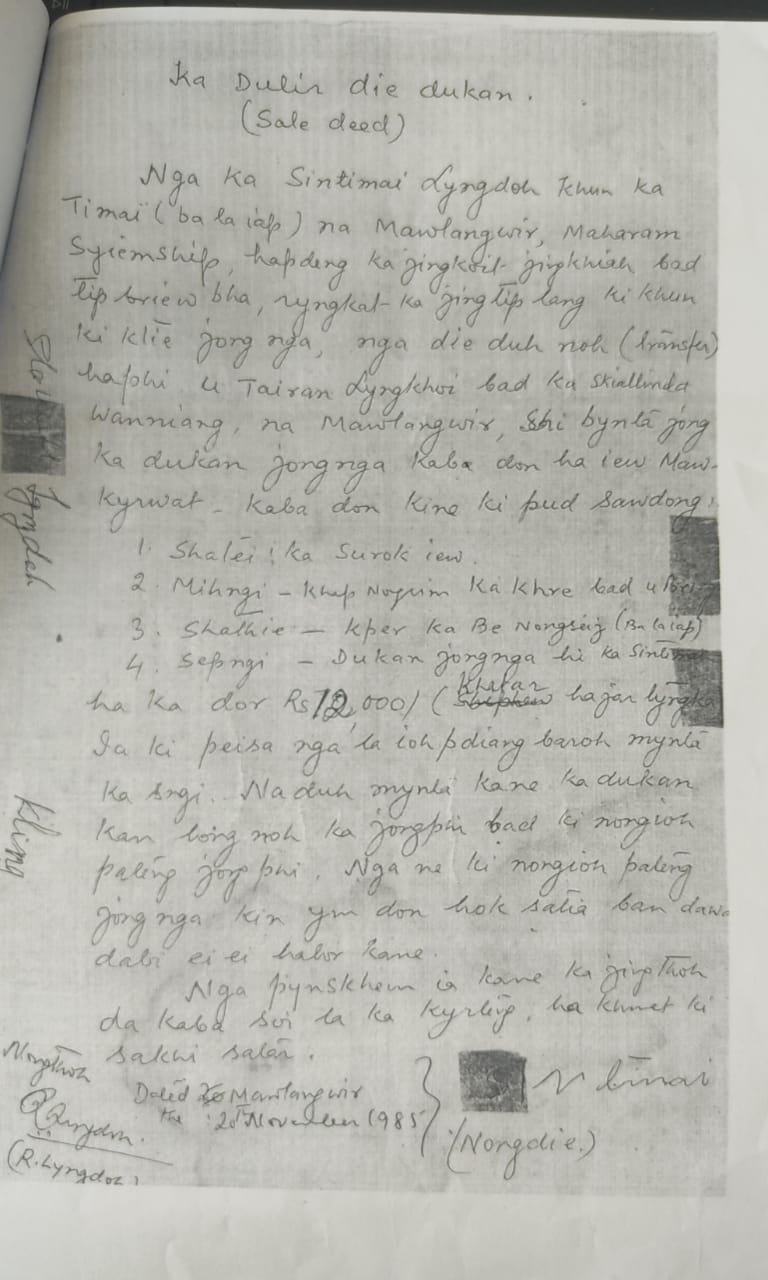 Ka Dulir die dukan.
(Sale deed)
Nga Ka Sintimai Lyngdoh Khun ka
Timai (ba la iap) na Mawlangwir, Maharam
Syiemship, hapdeng ka jingkoit jingkhiah bad
tip briew bha, ryngkat ka jingtip lang ki khun
ki klie jong nga, nga die duh noh (transfer)
haphi u Tairan Lyngkhoi bad ka Skiallinda
Wanniang, na Mawlangwir, Shi bynta jong
ka dukan jongnga kaba don ha iew Maw-
kyrwat - kaba don kine ki pud sawdong:
1. Shatei : ka Surok iew.
2. Mihngi - Khap Ka Khre bad u
3. Shathie - Kper ka Be Nongseij (Ba la iap)
4. Sepngi - Dukan jongnga hi ka
ha ka dor Rs 12,000/ (Khatar hajar lyngka
Ia ki peisa nga la ioh pdiang baroh mynta
ka sngi. Naduh mynta kane ka dukan
kan long noh ka jongphi bad ki nongioh
pateng jong phi. Nga ne ki nongioh pateng
jong nga kin ym don hok satia ban dawa
dabi ei ei halor kane.
Nga pynskhem ia kane ka jingthoh
da kaba soi la ka kyrteng, ha khmat ki
sakhi salan.
Dated Mawlangwir
the 20th November 1985
(Nongdie.)
Nongthoh
(R. Lyngdoh)
Lyngdoh
Kling